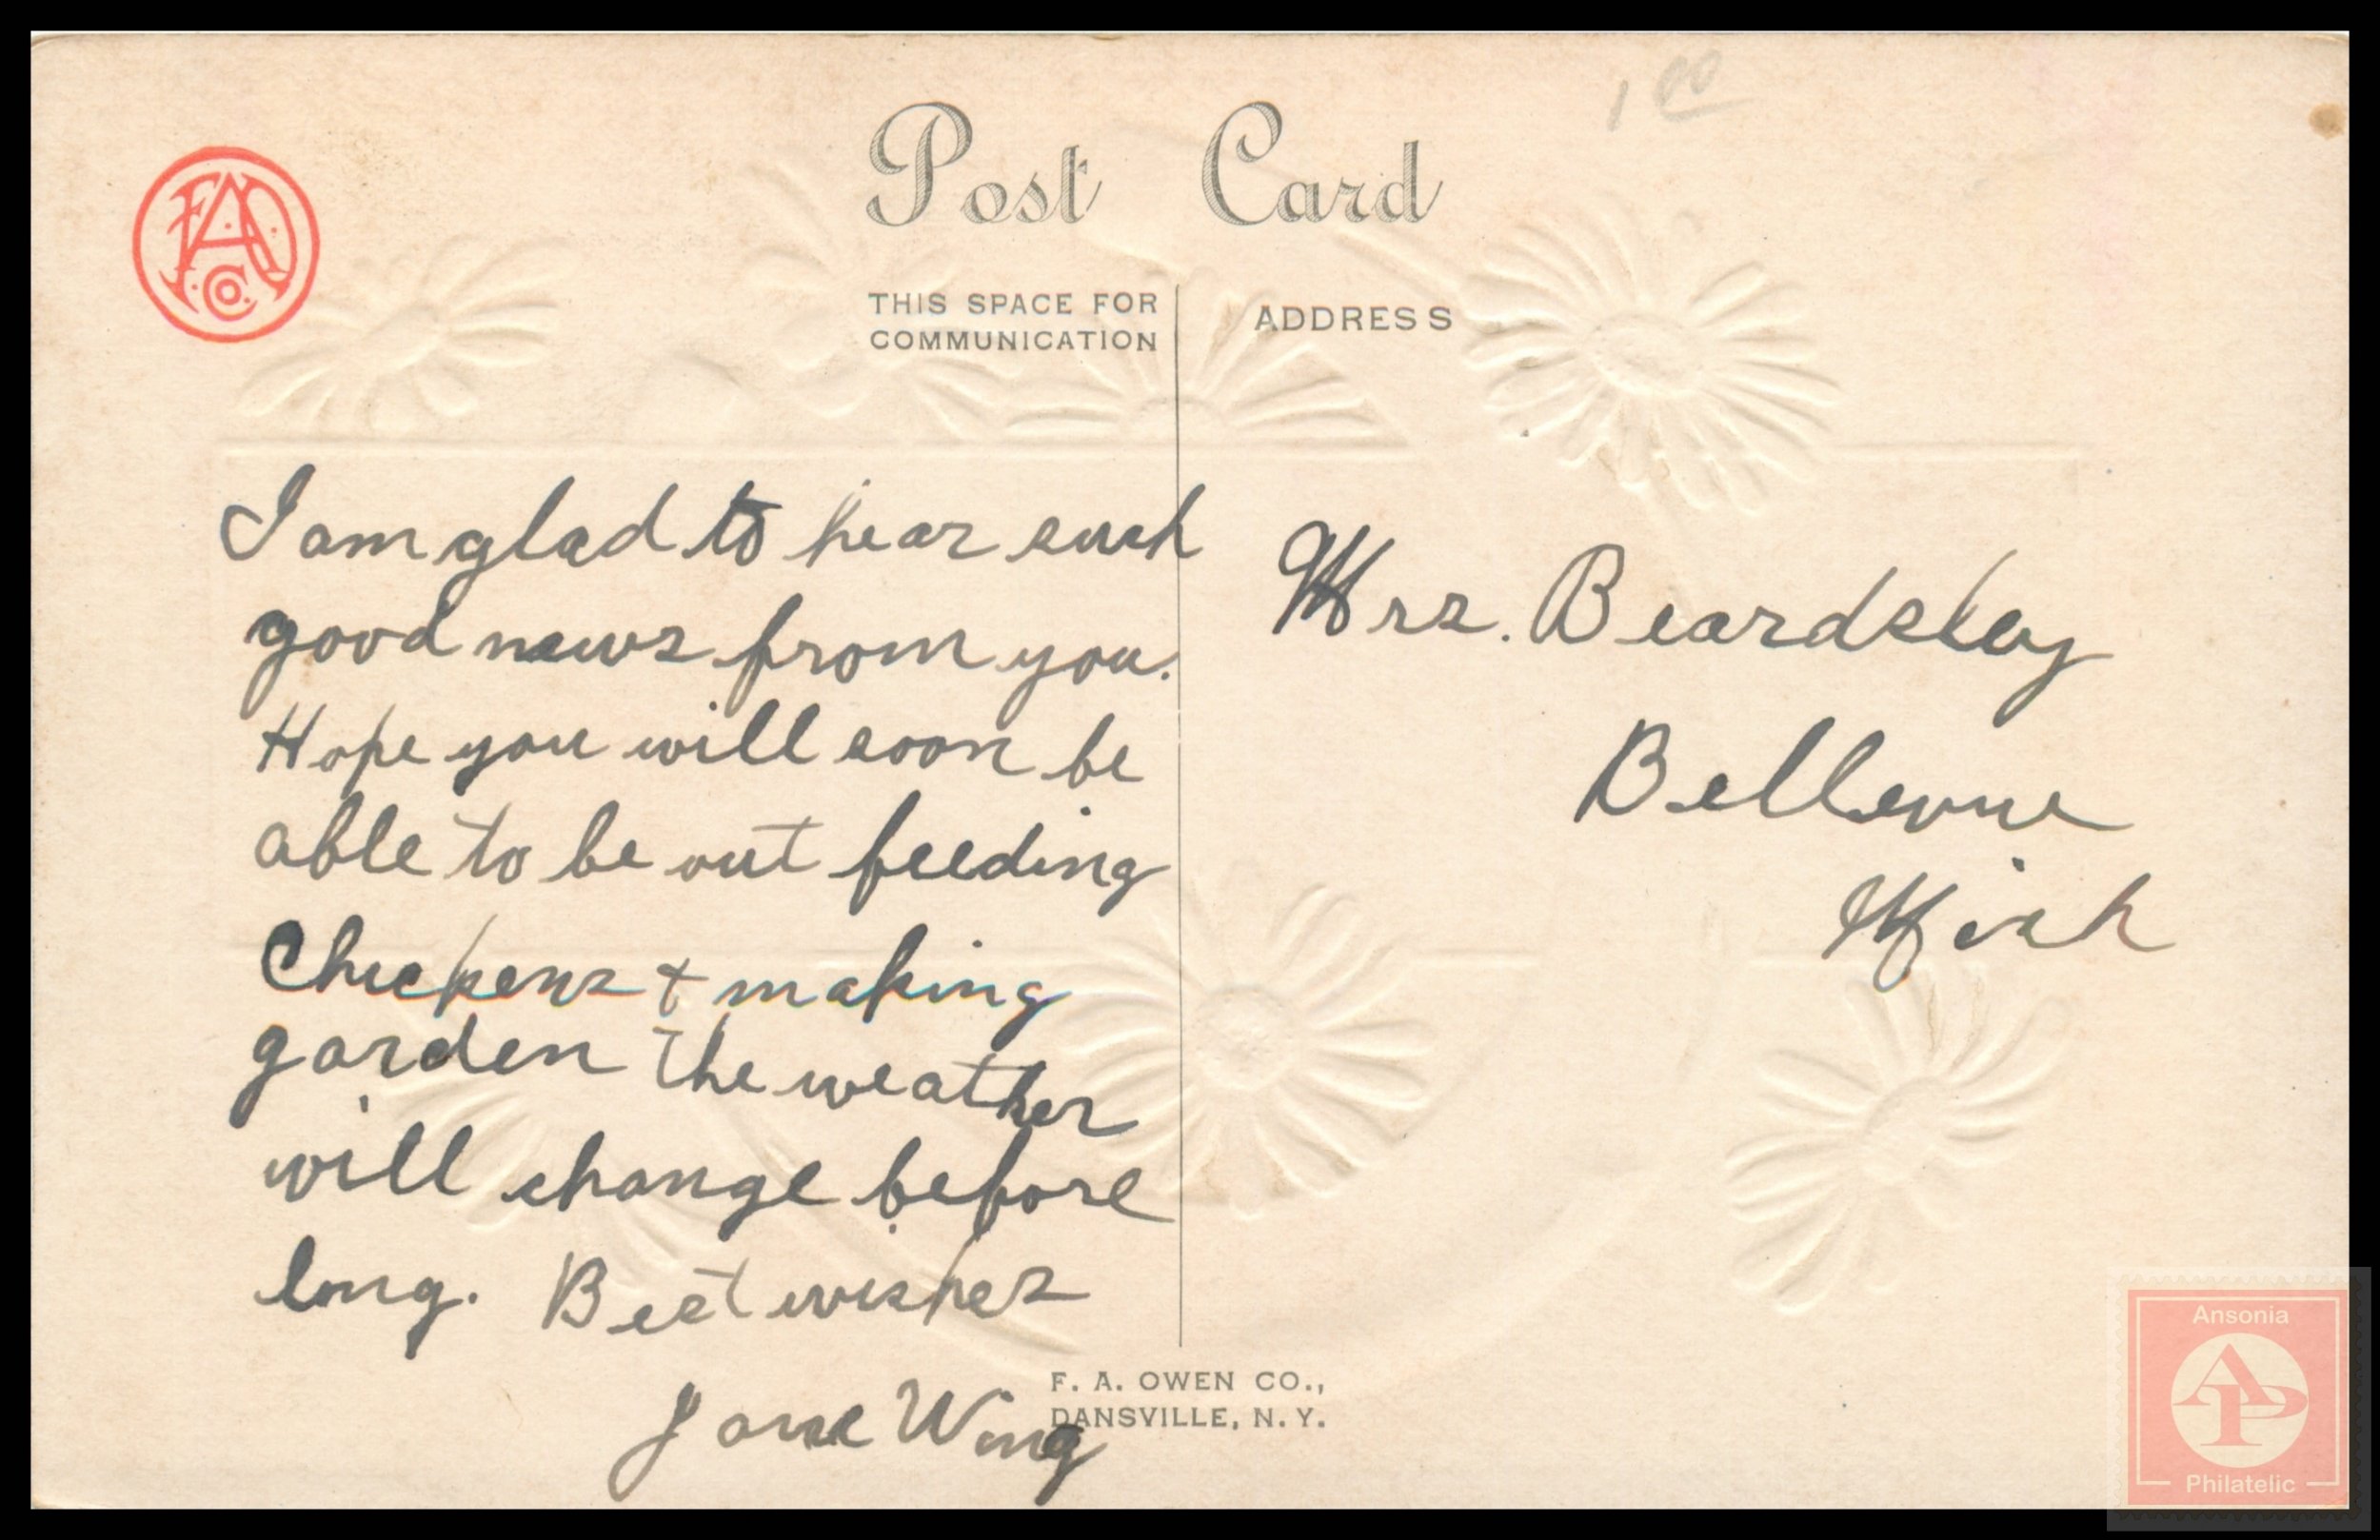 1 00
Post Card
FAO Co
THIS SPACE FOR
COMMUNICATION
ADDRESS
I am glad to hear such
good news from you.
Hope you will soon be
able to be out feeding
Chickens + making
garden The weather
will change before
long. Best wishes
Jane Wing
Mrs. Beardsley
Bellevue
Mich
F. A. OWEN CO.,
DANSVILLE, N. Y.
Ansonia
AP
Philatelic